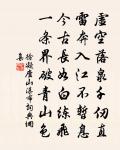 虛空落泉千仞直
雷奔入江不暫息
今古長如白練飛
一條界破青山色
徐凝廬山瀑布詞典網
集